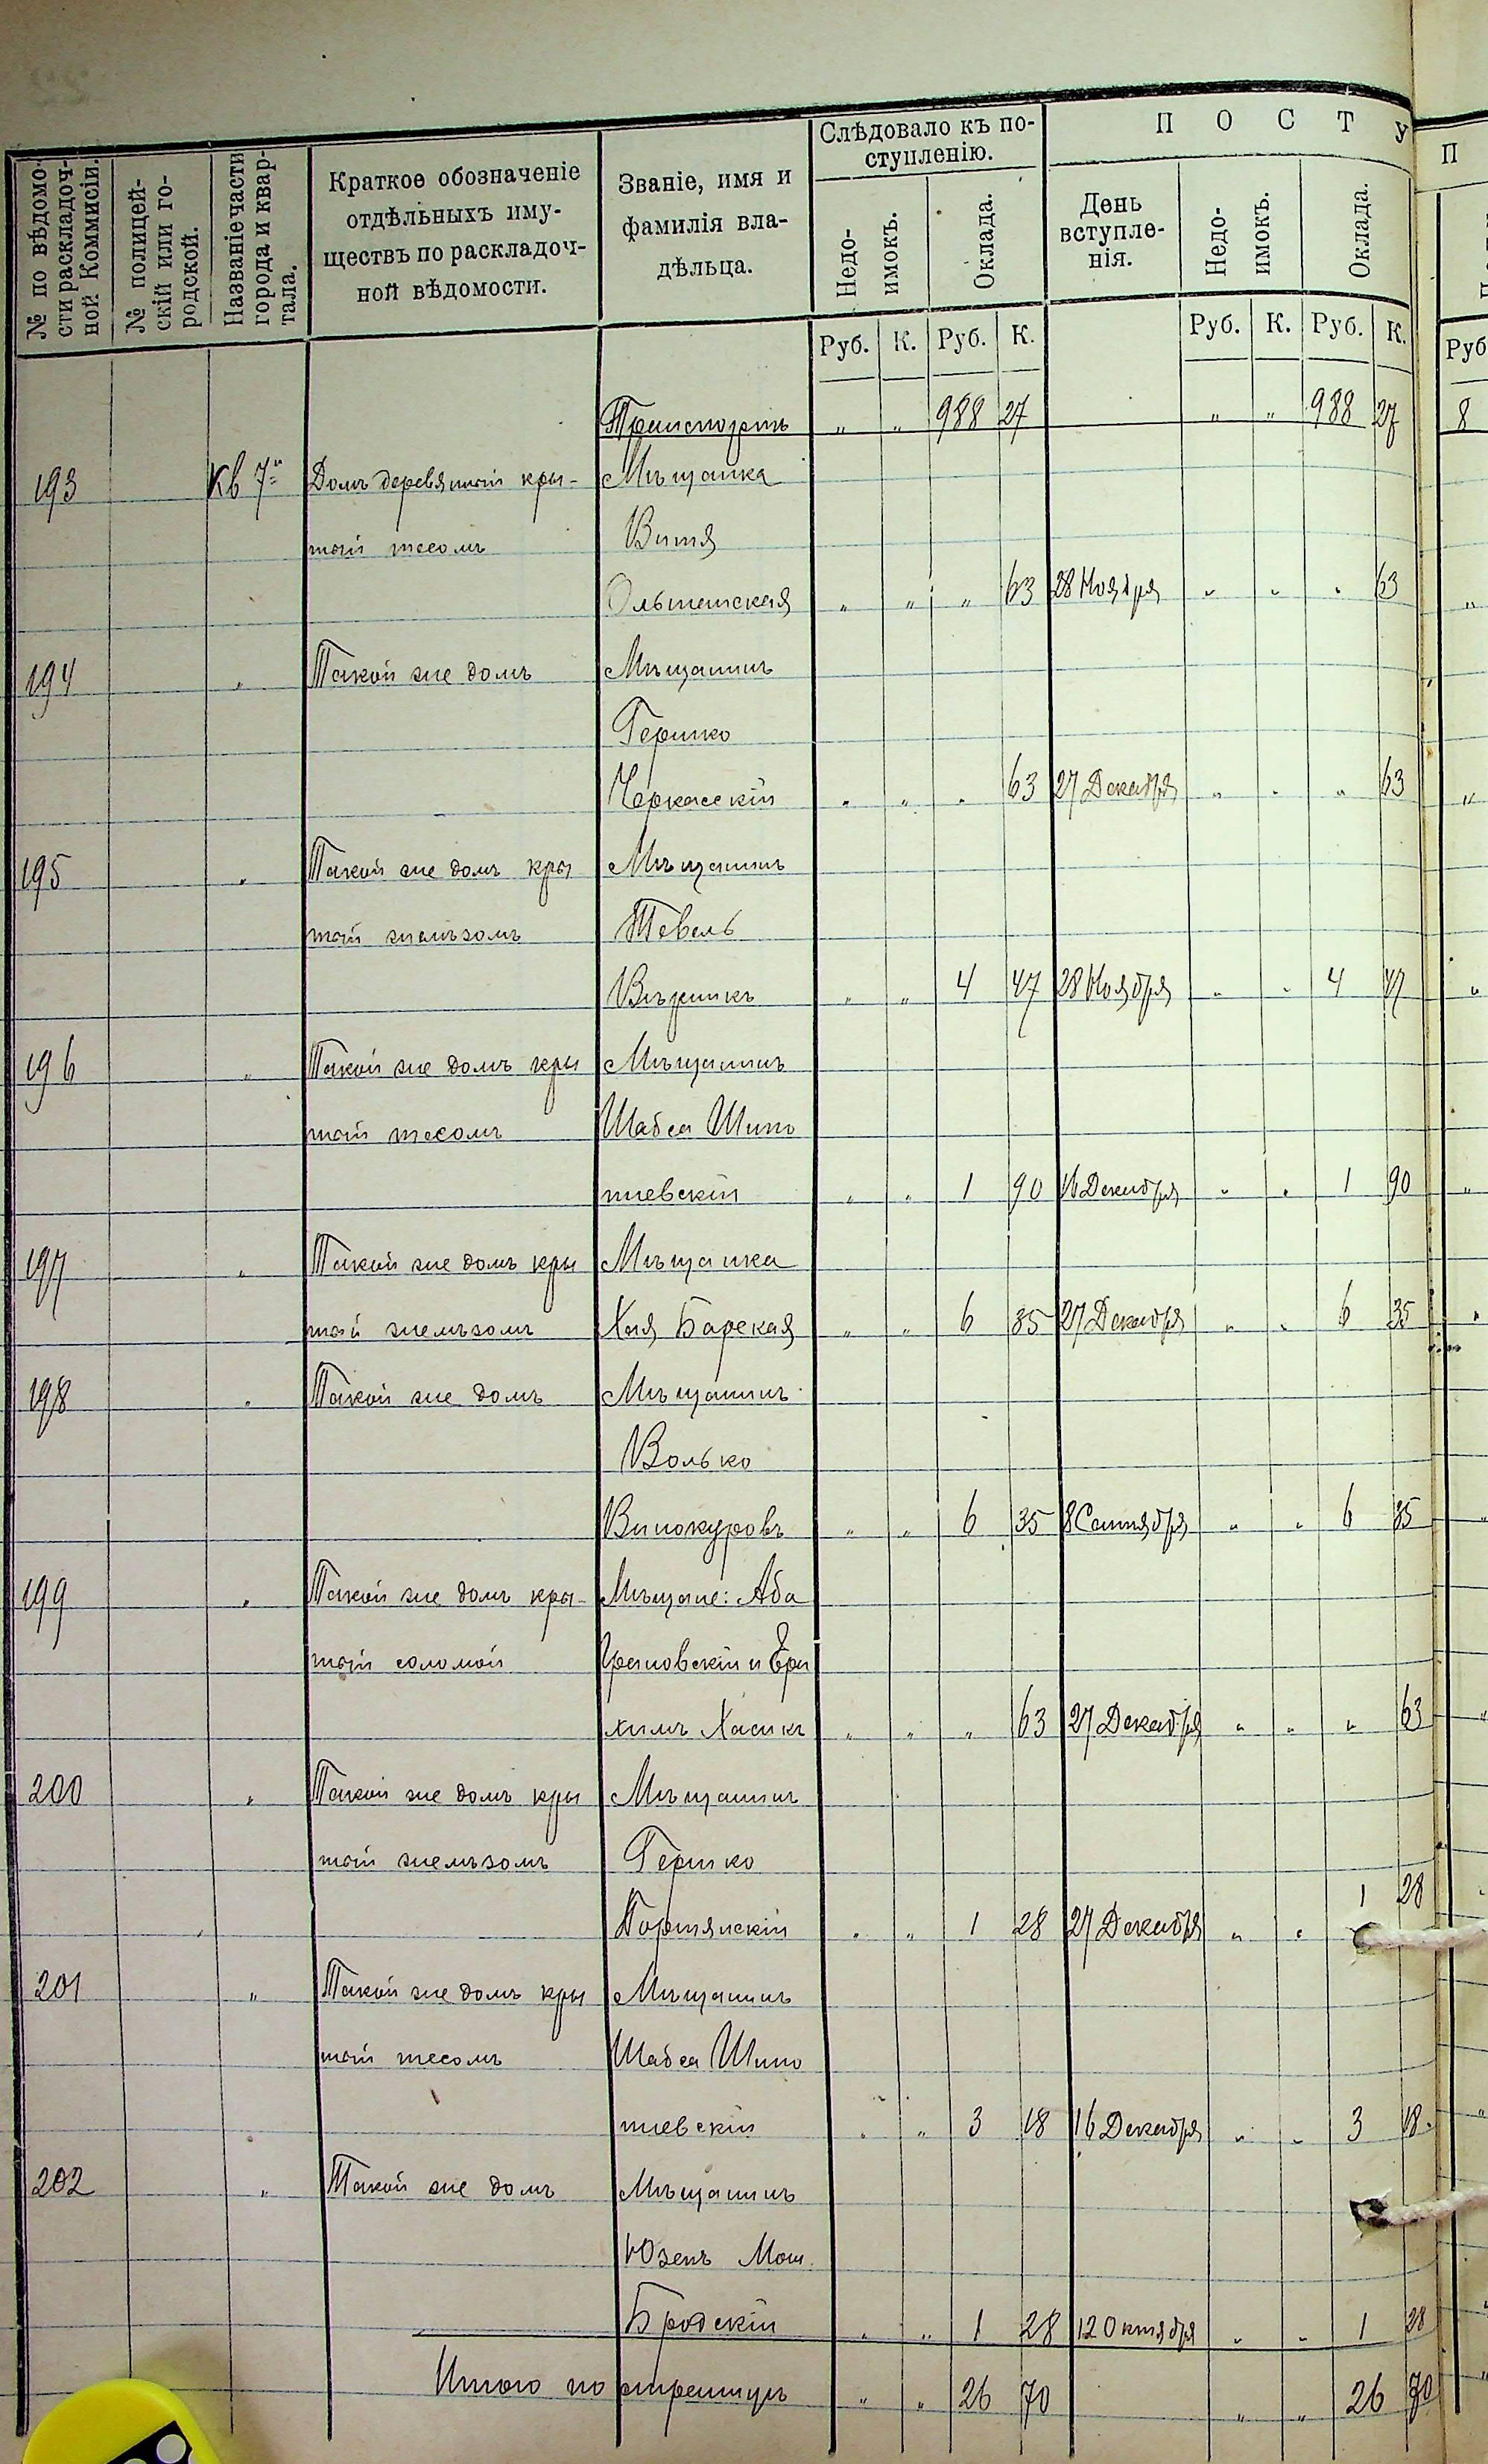 № по вѣдомости раскладочной Коммисіи.
№ полицейскій или городской.
Названіе части города и квартала.
Краткое обозначеніе отдѣльныхъ имуществъ по раскладочной вѣдомости.
Званіе, имя и фамилія владѣльца.
Слѣдовало къ поступленію.
П О С Т У
П
Недоимокъ.
Оклада.
День вступленія.
Недоимокъ.
Оклада.
Руб. К. Руб. К. Руб. К. Руб. К. Руб
Транспортъ „ „ 988 27 „ „ 988 27 8
193 Кв 7й Домъ деревянный кры- Мѣщанка
тый тесомъ Витя
Ольшанская „ „ „ 63 28 Ноября „ „ „ 63 „
194 „ Такой же домъ Мѣщанинъ
Гершко
Черкасскій „ „ „ 63 27 Декабря „ „ „ 63 „
195 „ Такой же домъ кры Мѣщанинъ
тый желѣзомъ Тевель
„ „ 4 47 28 Ноября „ „ 4 47 „
196 „ Такой же домъ кры Мѣщанинъ
тый тесомъ Шабса Шипо
шевскій „ „ 1 90 16 Декабря „ „ 1 90 „
197 „ Такой же домъ кры Мѣщанка
тый желѣзомъ Хая Барская „ „ 6 35 27 Декабря „ „ 6 35 „
198 „ Такой же домъ Мѣщанинъ
Волько
Винокуровъ „ „ 6 35 8 Сентября „ „ 6 35 „
199 „ Такой же домъ кры- Мѣщане: Аба
тый соломой Грановскій и Ера
химъ Хасикъ „ „ „ 63 27 Декабря „ „ „ 63 „
200 „ Такой же домъ кры Мѣщанинъ
тый желѣзомъ Гершко
Портянскій „ „ 1 28 27 Декабря „ „ 1 28
201 „ Такой же домъ кры Мѣщанинъ
тый тесомъ Шабса Шипо
шевскій „ „ 3 18 16 Декабря „ „ 3 18 „
202 „ Такой же домъ Мѣщанинъ
Юзепъ Мош.
Бродскій „ „ 1 28 12 Октября „ „ 1 28
Итого по страницѣ „ „ 26 70 „ „ 26 70